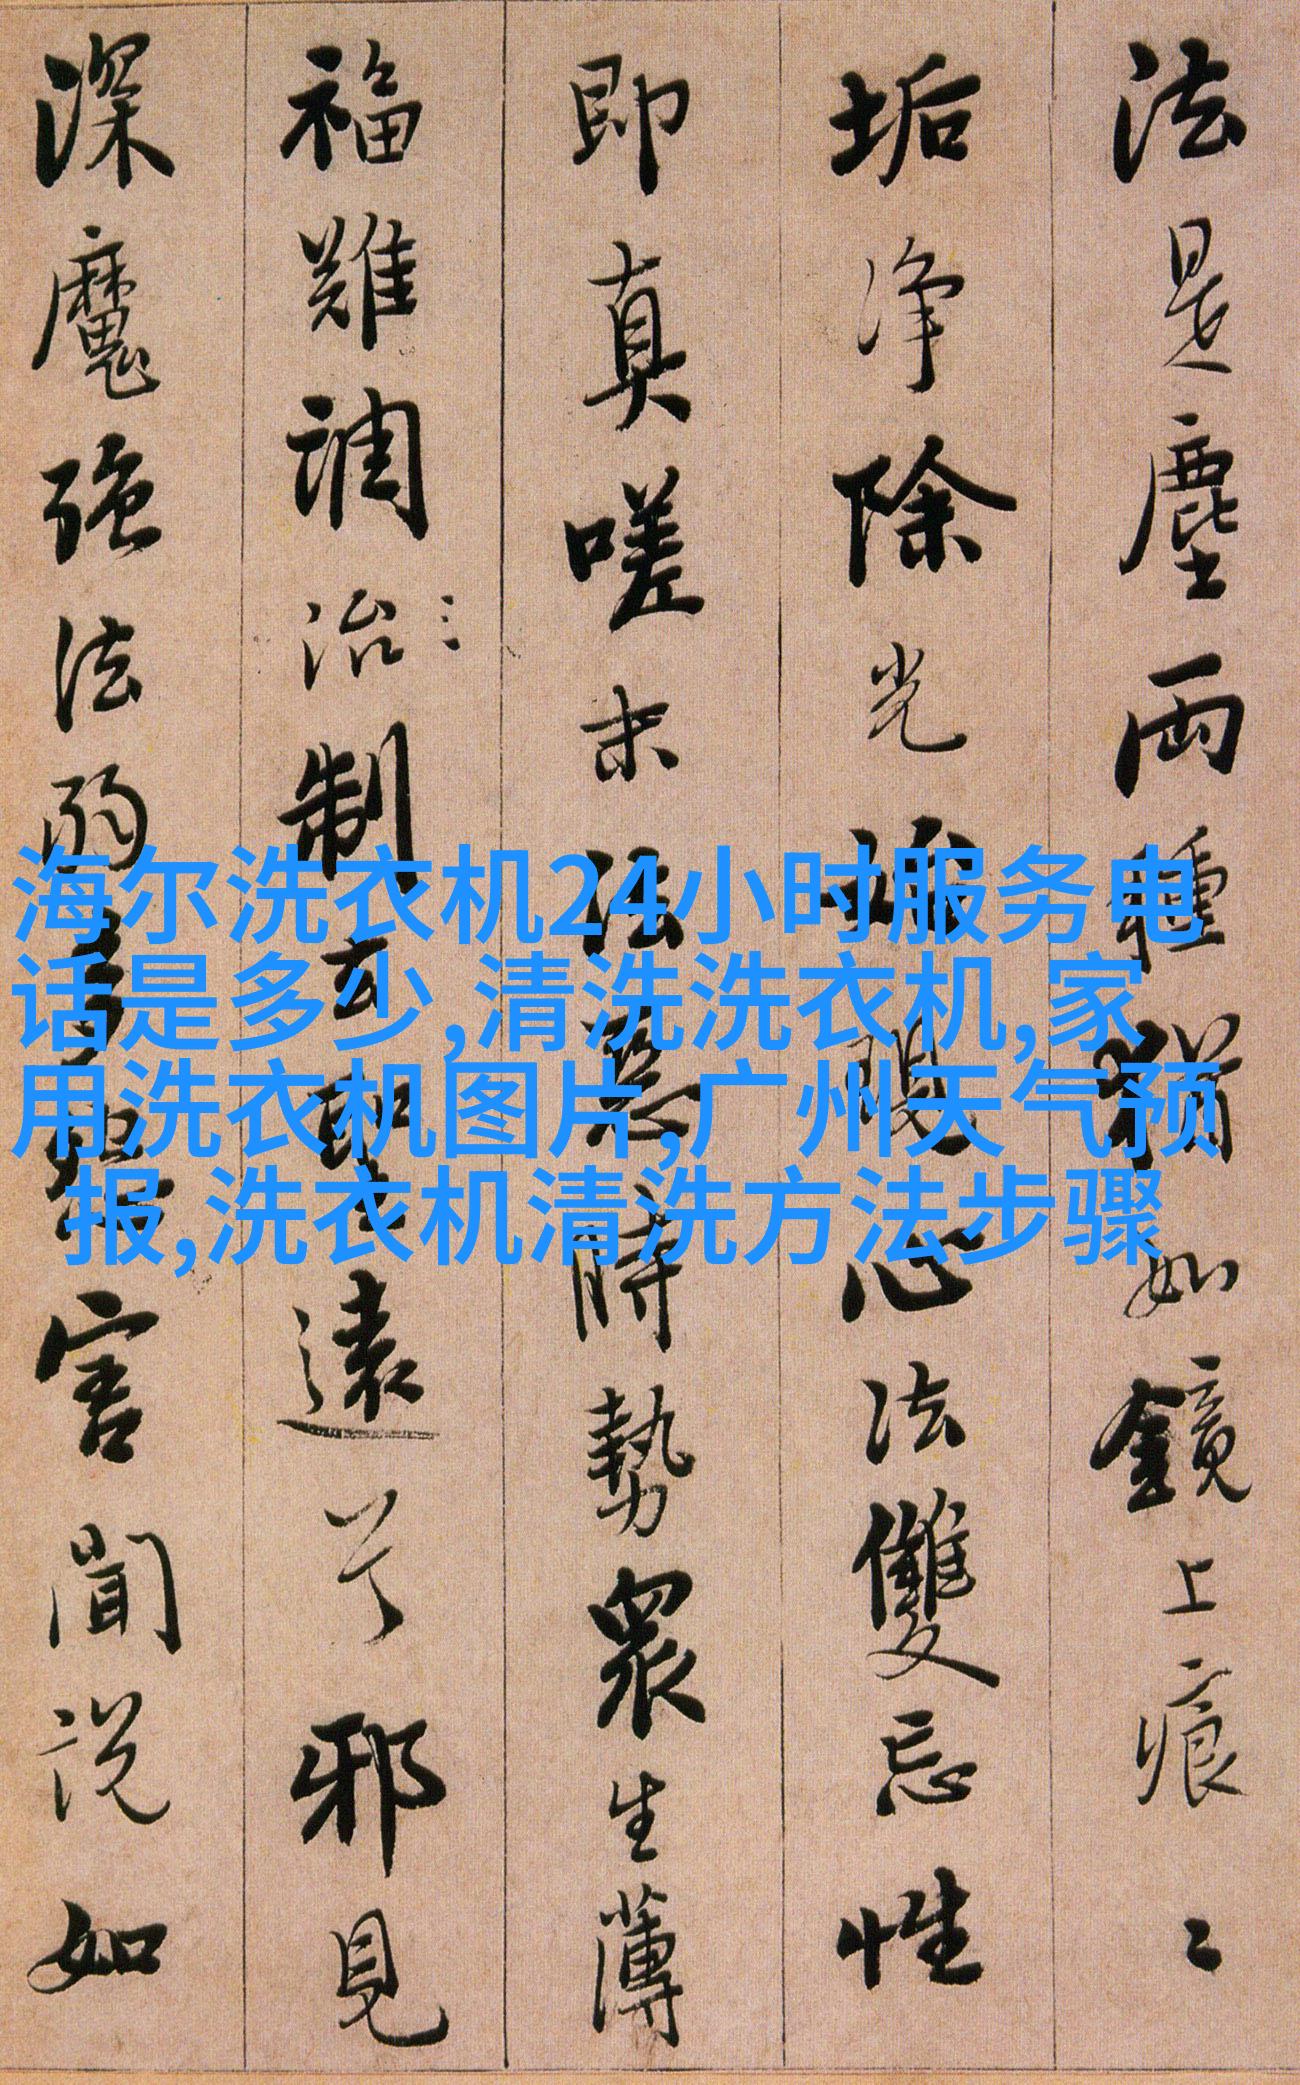 海尔洗衣机24小时服务电
话是多少,清洗洗衣机,家
用洗衣机图片,广州天气预
报,洗衣机清洗方法步骤
法是塵兩種猶如鏡上痕〻
垢淨除光始現心法雙忘性
即真嗟末法惡時勢衆生薄
福難調治制去聖遠兮邪見
深魔強法弱害聞說如